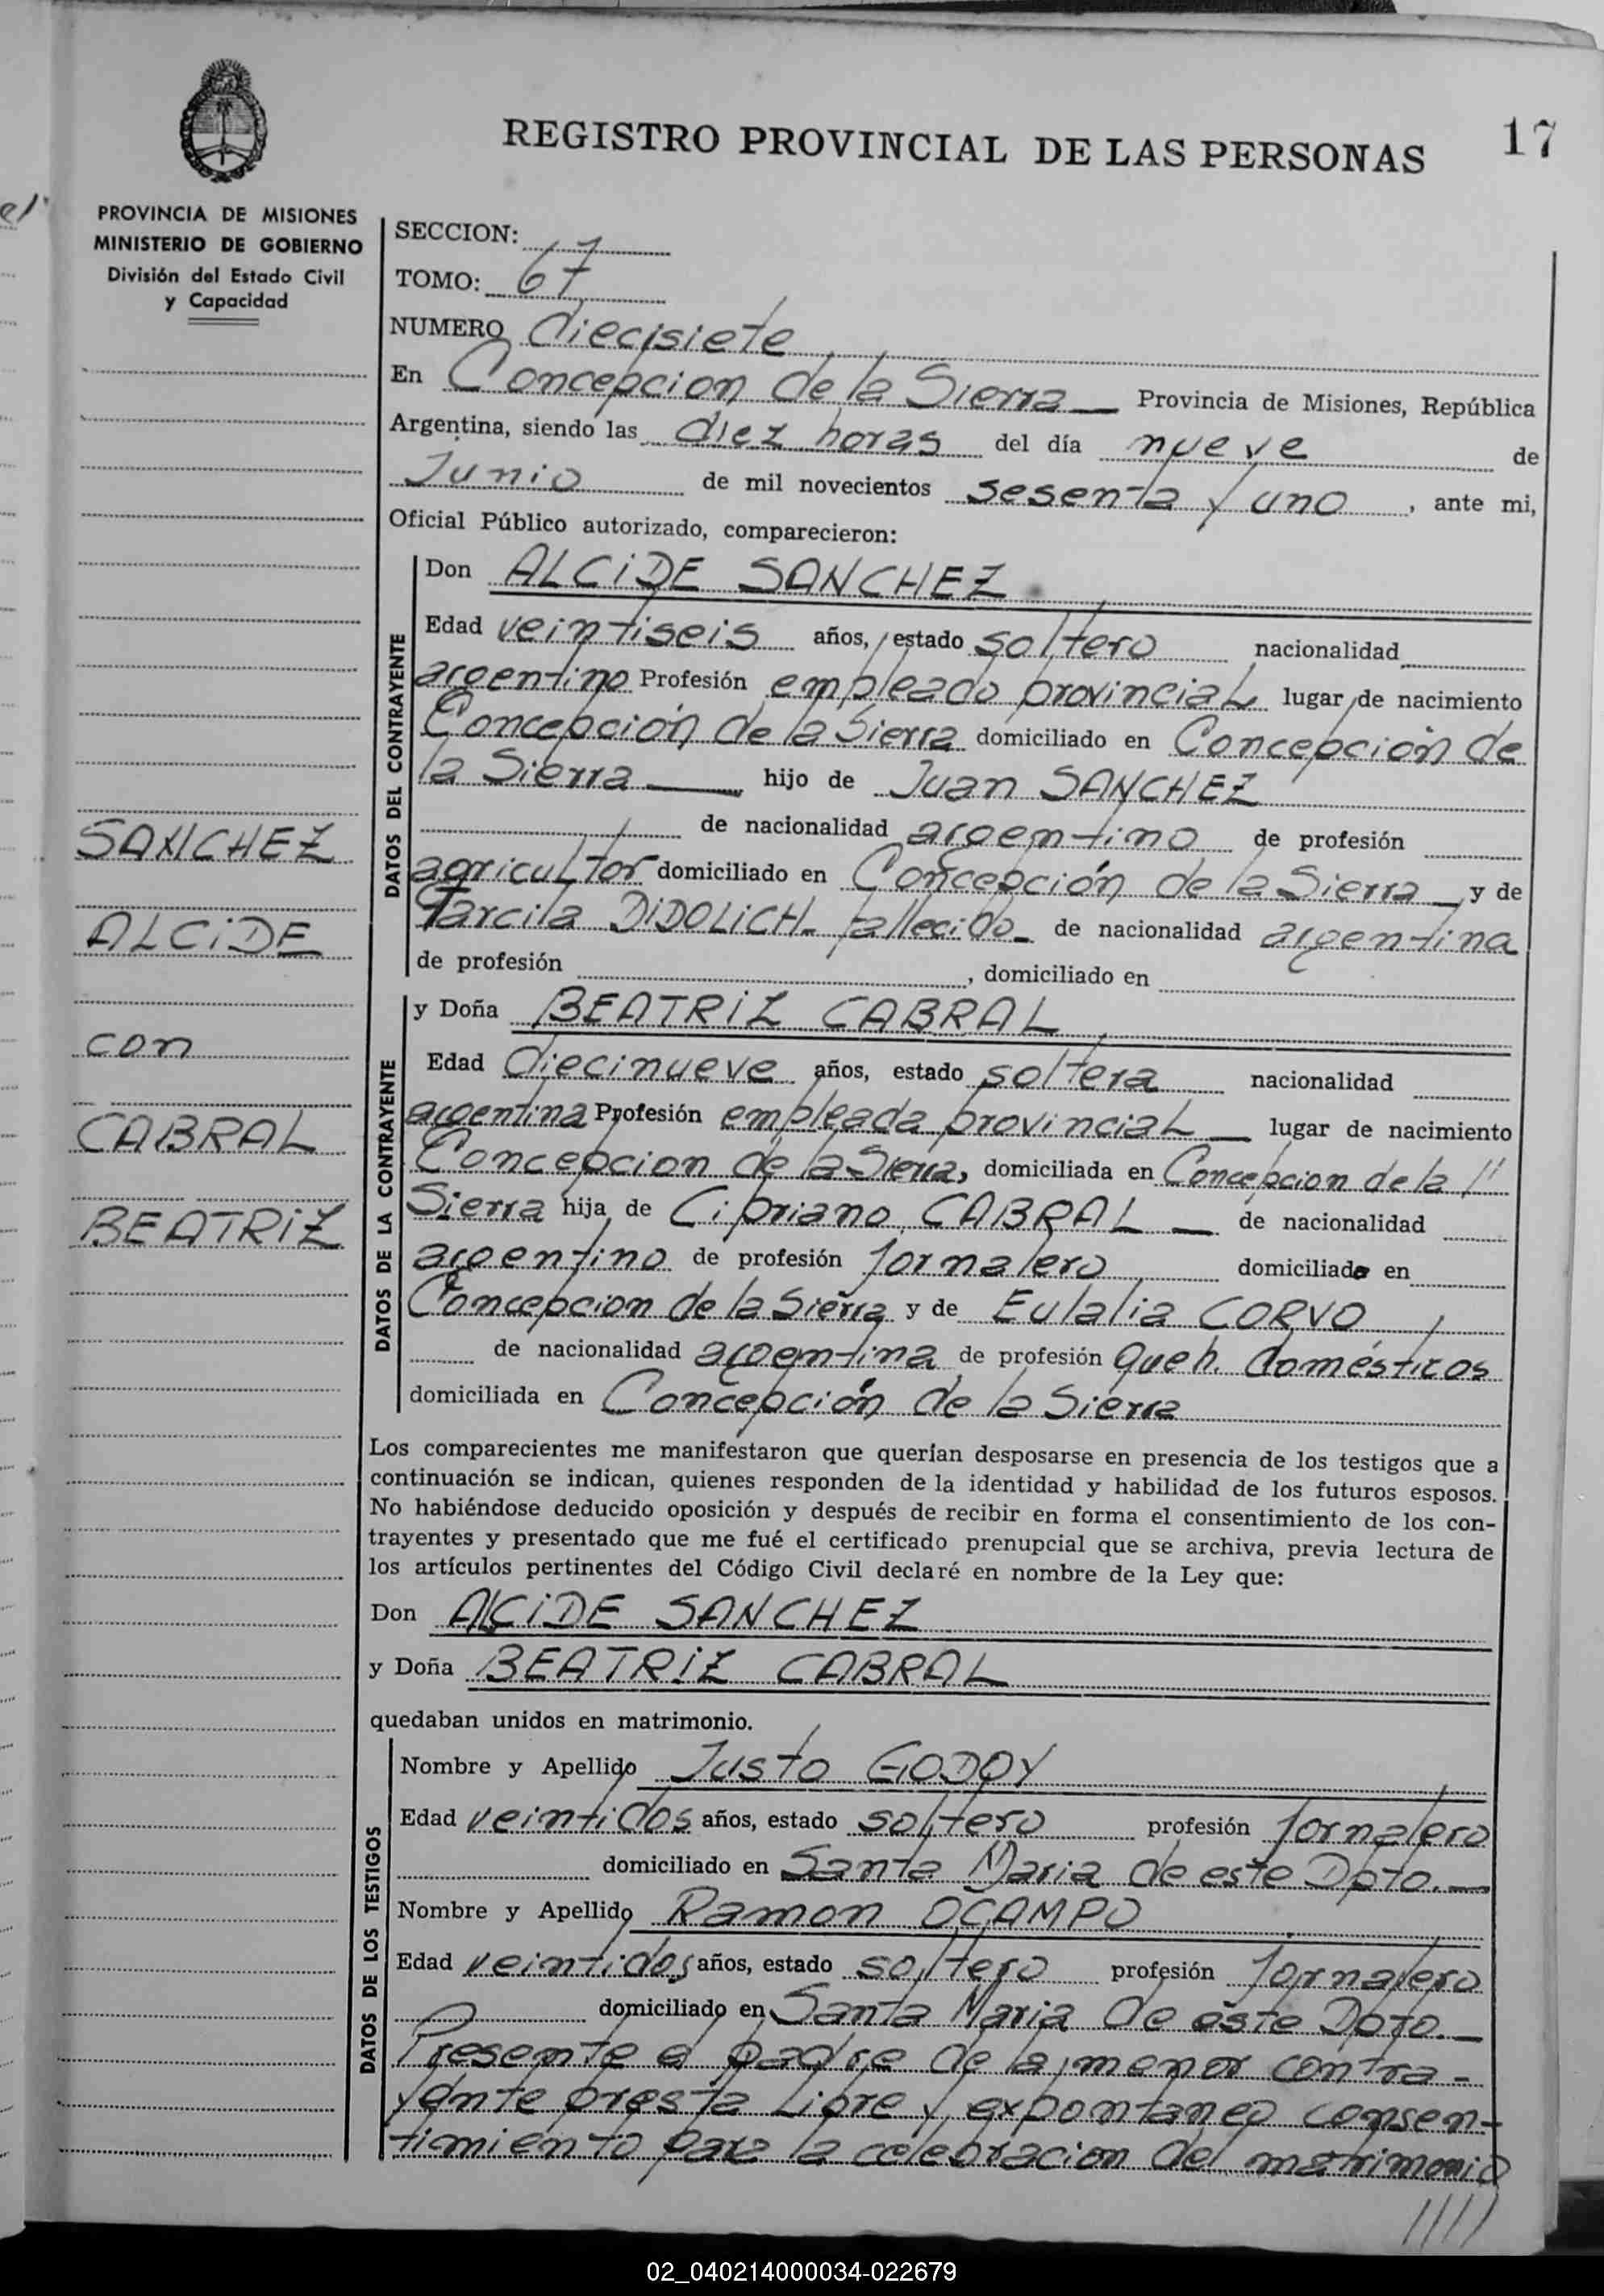 REGISTRO PROVINCIAL DE LAS PERSONAS
17
PROVINCIA DE MISIONES
MINISTERIO DE GOBIERNO
División del Estado Civil
y Capacidad
SANCHEZ
ALCIDE
con
CABRAL
BEATRIZ
SECCION:
TOMO: 67
NUMERO diecisiete
En Concepcion de la Sierra — Provincia de Misiones, República
Argentina, siendo las diez horas del día nueve de
Junio de mil novecientos sesenta y uno, ante mi,
Oficial Público autorizado, comparecieron:
DATOS DEL CONTRAYENTE
Don ALCIDE SANCHEZ
Edad veintiseis años, estado soltero nacionalidad
argentino Profesión empleado provincial lugar de nacimiento
Concepción de la Sierra domiciliado en Concepción de
la Sierra — hijo de Juan SANCHEZ
de nacionalidad argentino de profesión
agricultor domiciliado en Concepción de la Sierra y de
Tarcila DIDOLICH - fallecido - de nacionalidad argentina
de profesión , domiciliado en
DATOS DE LA CONTRAYENTE
y Doña BEATRIZ CABRAL
Edad diecinueve años, estado soltera nacionalidad
argentina Profesión empleada provincial — lugar de nacimiento
Concepcion de la Sierra, domiciliada en Concepcion de la //
Sierra hija de Cipriano CABRAL — de nacionalidad
argentino de profesión Jornalero domiciliado en
Concepcion de la Sierra y de Eulalia CORVO
de nacionalidad argentina de profesión queh. domésticos
domiciliada en Concepción de la Sierra
Los comparecientes me manifestaron que querían desposarse en presencia de los testigos que a
continuación se indican, quienes responden de la identidad y habilidad de los futuros esposos.
No habiéndose deducido oposición y después de recibir en forma el consentimiento de los con-
trayentes y presentado que me fué el certificado prenupcial que se archiva, previa lectura de
los artículos pertinentes del Código Civil declaré en nombre de la Ley que:
Don ALCIDE SANCHEZ
y Doña BEATRIZ CABRAL
quedaban unidos en matrimonio.
DATOS DE LOS TESTIGOS
Nombre y Apellido Justo GODOY
Edad veintidos años, estado soltero profesión Jornalero
domiciliado en Santa Maria de este Dpto. —
Nombre y Apellido Ramon OCAMPO
Edad veintidos años, estado soltero profesión Jornalero
domiciliado en Santa Maria de este Dpto. —
Presente el padre de la menor contra-
yente presta libre y expontaneo consen-
timiento para la celebracion del matrimonio
/////
02_040214000034-022679